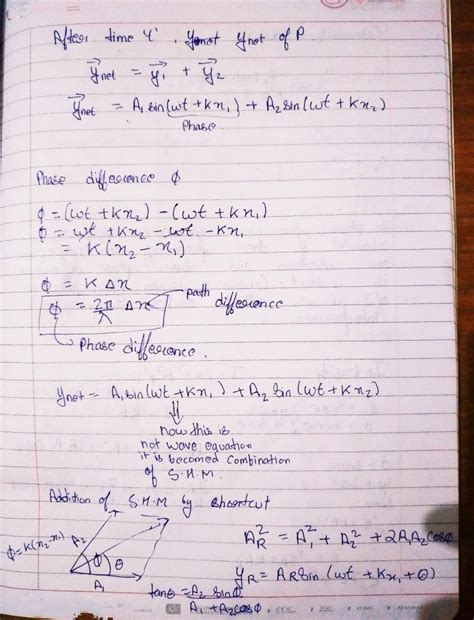 After time 't'. ynet of P
y⃗net = y⃗1 + y⃗2
y⃗net = A1 sin(wt + Kx1) + A2 sin(wt + Kx2)
Phase
Phase difference ϕ
ϕ = (wt + Kx2) - (wt + Kx1)
ϕ = wt + Kx2 - wt - Kx1
= K(x2 - x1)
ϕ = K Δx
ϕ = 2π/λ Δx path difference
Phase difference.
ynet = A1 sin(wt + Kx1) + A2 sin(wt + Kx2)
⇓
now this is
not wave equation
it is becomed Combination
of S.H.M.
Addition of S.H.M by shortcut
ϕ = K(x2-x1) A2 ϕ θ A1
A_R^2 = A1^2 + A2^2 + 2A1A2cosϕ
yR = AR sin (wt + Kx1 + θ)
tanθ = A2 sinϕ / A1 + A2cosϕ